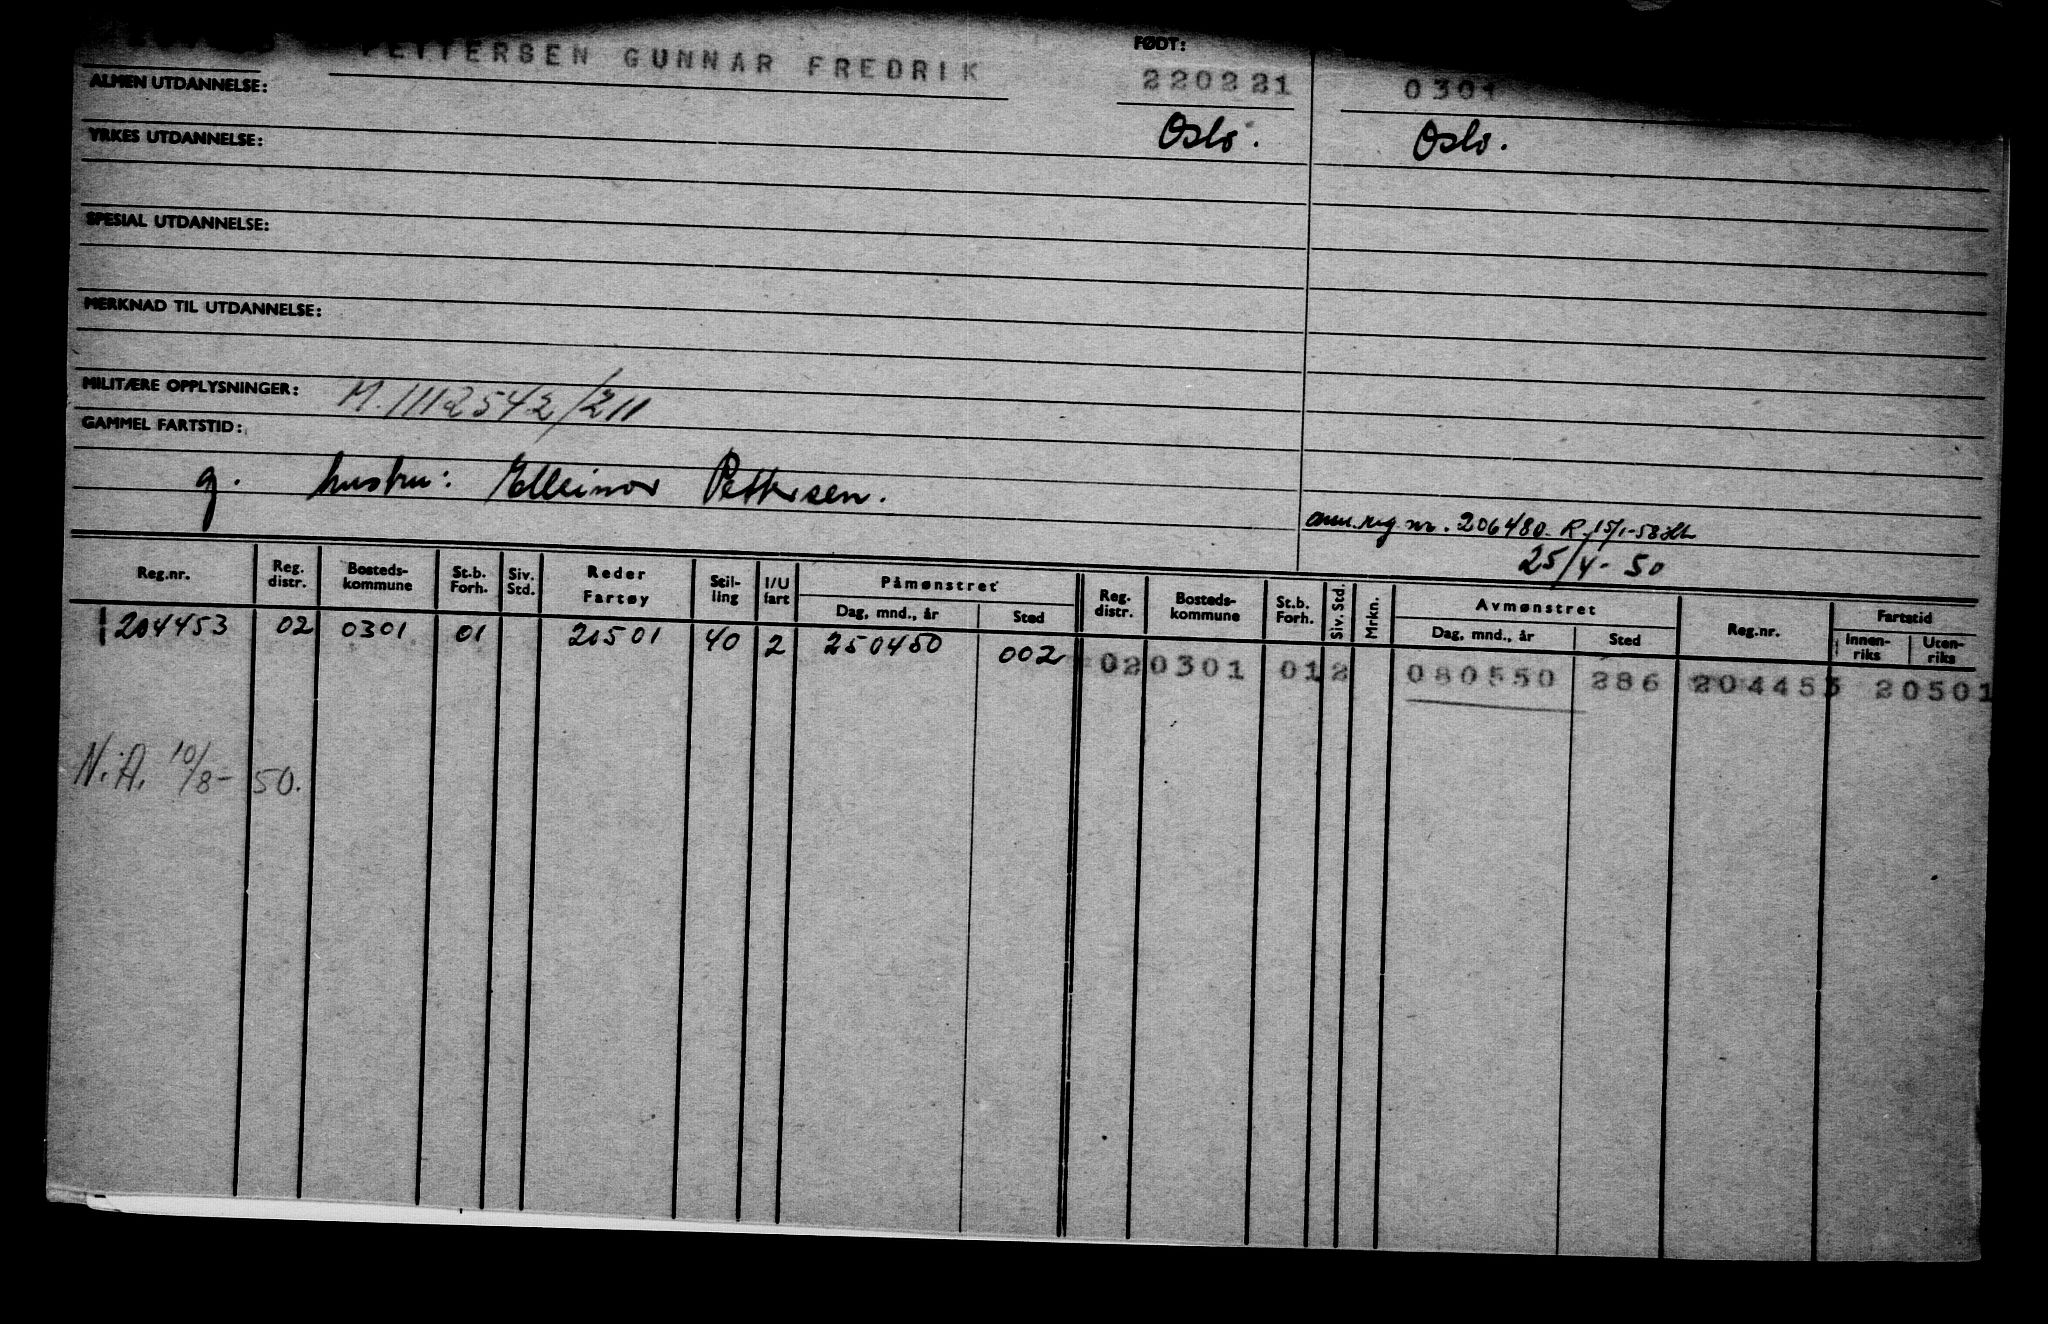 PETTERSEN GUNNAR FREDRIK
FØDT:
220221
0301
Oslo.
Oslo.
ALMEN UTDANNELSE:
YRKES UTDANNELSE:
SPESIAL UTDANNELSE:
MERKNAD TIL UTDANNELSE:
MILITÆRE OPPLYSNINGER: M. 1112542/211
GAMMEL FARTSTID:
g. hustru: Elleinor Pettersen.
reg nr. 206480. R. 15/1-58
25/4-50
Reg.nr. Reg. distr. Bosteds-kommune St.b. Forh. Siv. Std. Reder Fartøy Stil-ling I/U fart Påmønstret Dag, mnd., år Sted Reg. distr. Bosteds-kommune St.b. Forh. Siv. Std. Mrkn. Avmønstret Dag, mnd., år Sted Reg.nr. Fartstid Innen-riks Uten-riks
204453 02 0301 01 20501 40 2 250450 002 02 0301 01 2 080550 286 204453 20501
N.A. 10/8-50.